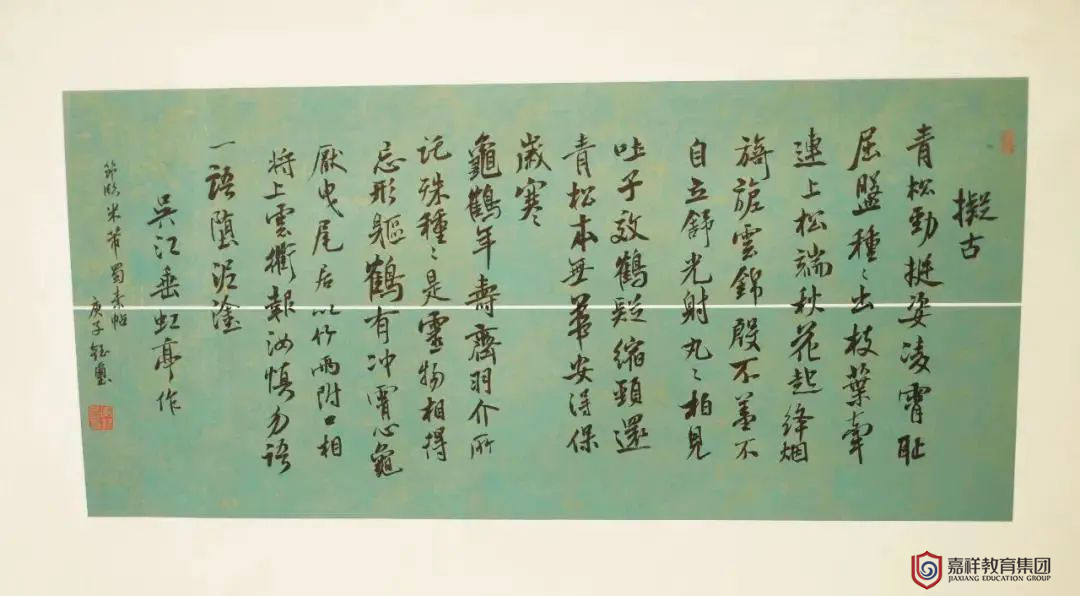 擬古
青松勁挺姿凌霄耻
屈盤種〻出枝葉牽
連上松端秋花起絳烟
旖旎雲錦殷不羞不
自立舒光射丸〻柏見
吐子效鶴疑縮頸還
青松本無華安得保
歲寒
龜鶴年壽齊羽介所
託殊種〻是靈物相得
忘形軀鶴有冲霄心龜
厭曳尾居以竹兩附口相
將上雲衢報汝慎勿語
一語墮泥塗
吳江垂虹亭作
節臨米芾蜀素帖
庚子
嘉祥教育集团
JIAXIANG EDUCATION GROUP